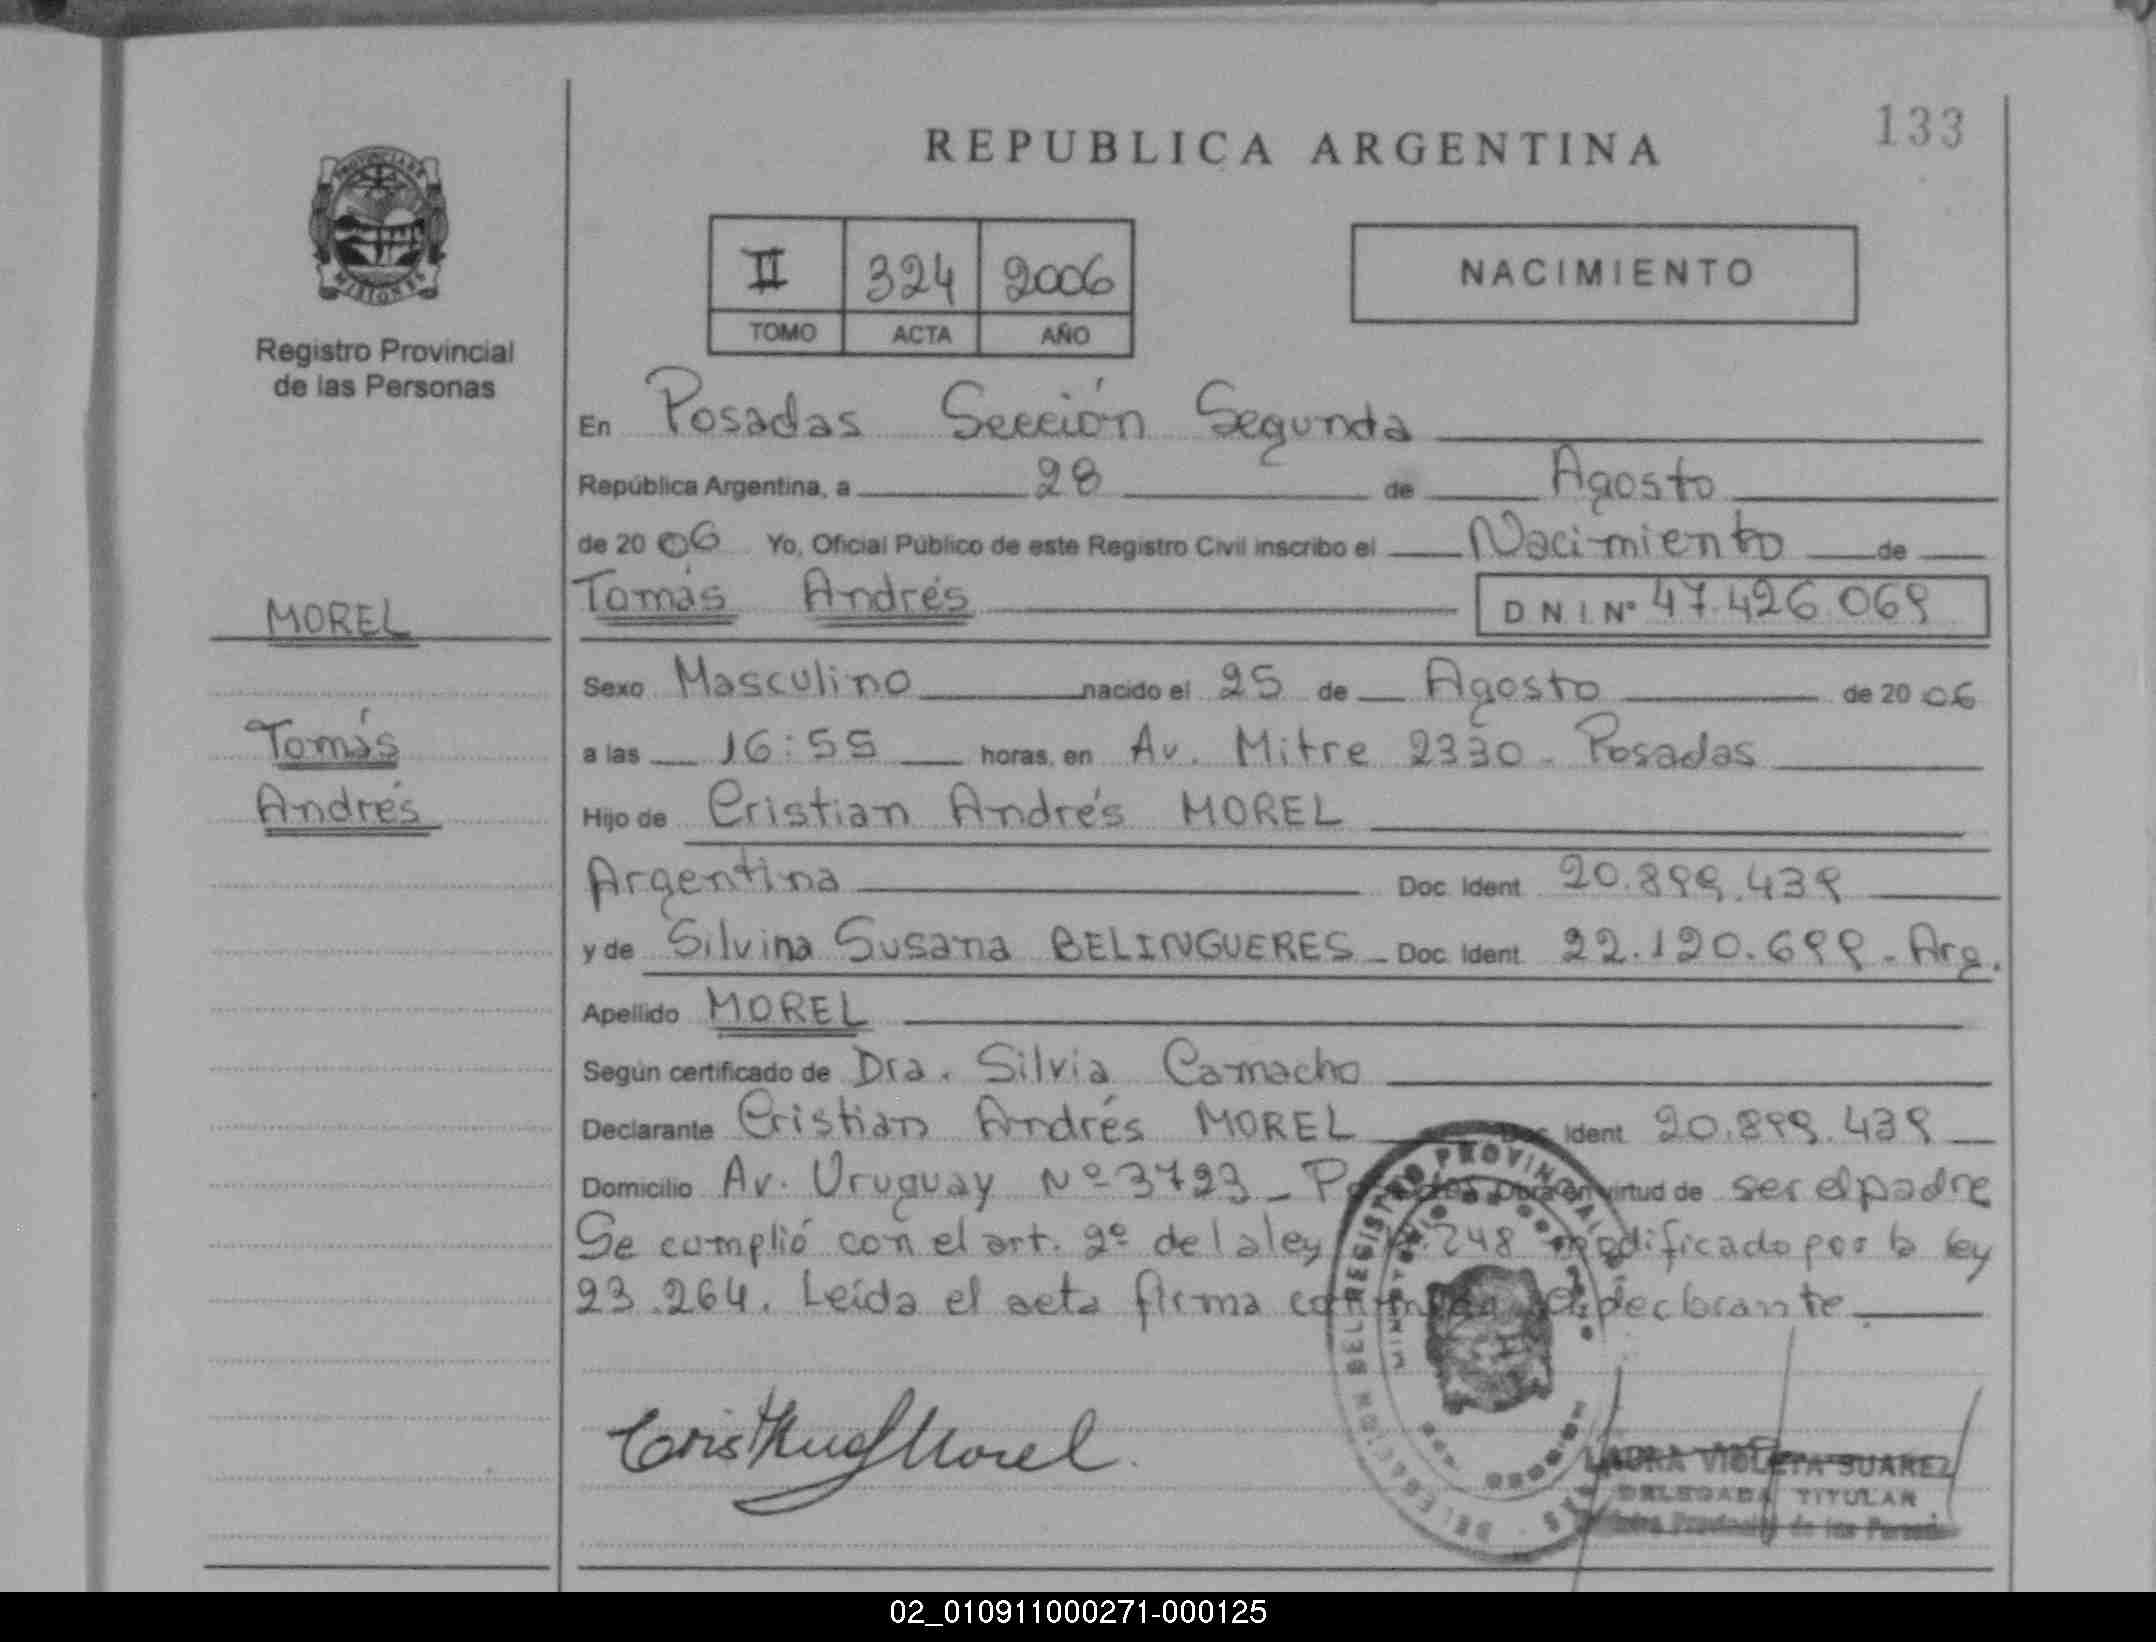 133
REPUBLICA ARGENTINA
PROVINCIA DE
MISIONES
Registro Provincial
de las Personas
II 324 2006
TOMO ACTA AÑO
NACIMIENTO
En Posadas Sección Segunda
República Argentina, a 28 de Agosto
de 2006 Yo, Oficial Público de este Registro Civil inscribo el Nacimiento de
MOREL
Tomás Andrés DNI Nº 47.426.069
Sexo Masculino nacido el 25 de Agosto de 2006
Tomás
a las 16:55 horas, en Av. Mitre 2330 - Posadas
Andrés
Hijo de Cristian Andrés MOREL
Argentina Doc. Ident 20.899.439
y de Silvina Susana BELINGUERES - Doc. Ident 22.120.699 - Arg.
Apellido MOREL
Según certificado de Dra. Silvia Camacho
Declarante Cristian Andrés MOREL Ident 20.899.439
Domicilio Av. Uruguay Nº 3723 - Obra en virtud de ser el padre
Se cumplió con el art. 2º de la ley 248 modificado por la ley
23.264. Leída el acta firma el declarante
Morel
LAURA VIOLETA SUAREZ
DELEGADA TITULAR
Registro Provincial de las Personas
02_010911000271-000125